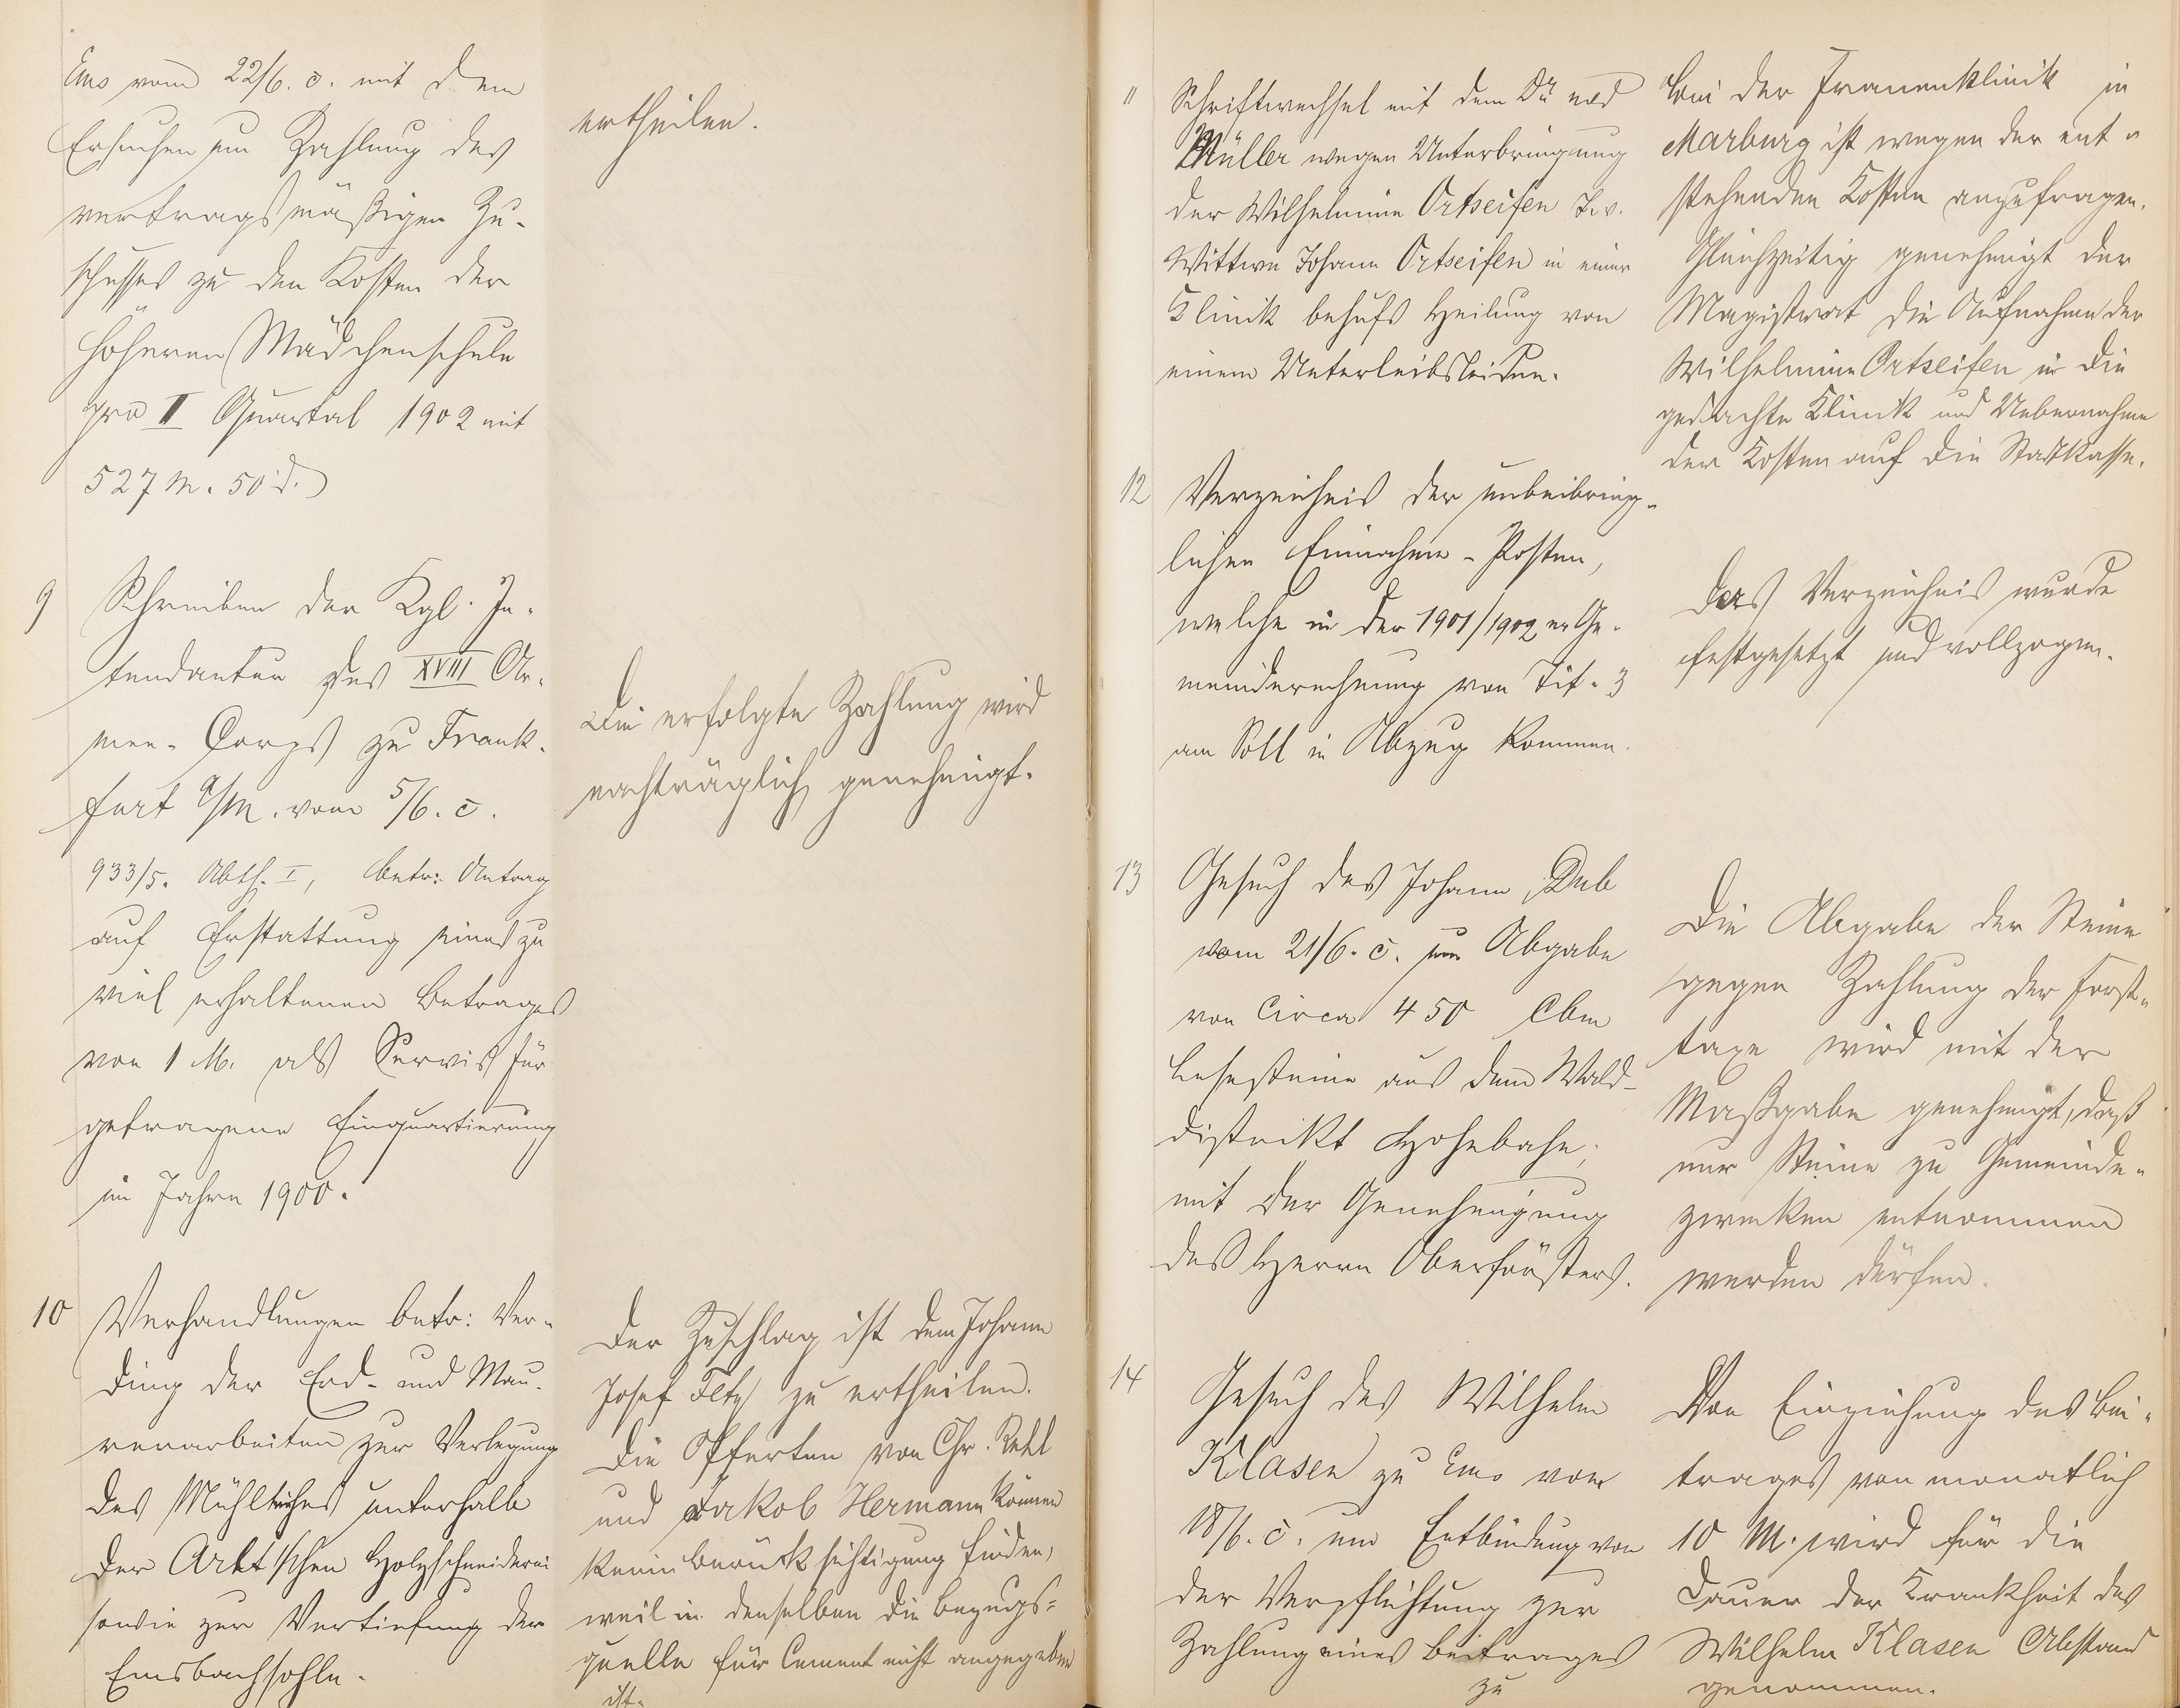 Ems vom 22/6. c. mit dem
Ersuchen um Zahlung des
vertragsmäßigen Zu-
schusses zu den Kosten der
höheren Mädchenschule
pro II Quartal 1902 mit
527 M. 50 d.
ertheilen.
9 Schreiben der Kgl. In-
tendantur des XVIII Ar-
mee-Corps zu Frank-
furt a/M. vom 5/6. c.
933/5. Abth. I, betr: Antrag
auf Erstattung eines zu
viel erhaltenen Betrages
von 1 M. als Servis für
getragene Einquartierung
im Jahre 1900.
Die erfolgte Zahlung wird
nachträglich genehmigt.
10 Verhandlungen betr: Ver-
ding der Erd- und Mau-
rerarbeiten zur Verlegung
des Mühlteiches unterhalb
der Arkt'schen Holzschneiderei
sowie zur Vertiefung der
Emsbachsohle.
Der Zuschlag ist dem Johann
Josef zu ertheilen.
Die Offerten von Chr.
und Jakob Hermann können
keine Berücksichtigung finden,
weil in denselben die Bezugs-
quelle für Cement nicht angegeben
ist.
11 Schriftwechsel mit dem Dr med
Müller wegen Unterbringung
der Wilhelmine Ortseifen T. v.
Wittwe Johann Ortseifen in einer
Klinik behufs Heilung von
einem Unterleibsleiden.
Bei der Frauenklinik in
Marburg ist wegen der ent-
stehenden Kosten anzufragen.
Gleichzeitig genehmigt der
Magistrat die Aufnahme der
Wilhelmine Ortseifen in die
gedachte Klinik und Uebernahme
der Kosten auf die Stadtkasse.
12 Verzeichnis der unbeibring-
lichen Einnahme-Posten,
welche in der 1901/1902er Ge-
meinderechnung von Tit. 3
am Soll in Abzug kommen.
Das Verzeichnis wurde
festgesetzt und vollzogen.
13 Gesuch des Johann Dub
vom 21/6. c. um Abgabe
von circa 450 Cbm
Lesesteine aus dem Wald-
distrikt Hohebahn,
mit der Genehmigung
des Herrn Oberförsters.
Die Abgabe der Steine
gegen Zahlung der Forst-
taxe wird mit der
Maßgabe genehmigt, daß
nur Steine zu Gemeinde-
zwecken entnommen
werden dürfen.
14 Gesuch des Wilhelm
Klasen zu Ems vom
18/6. c. um Entbindung von
der Verpflichtung zur
Zahlung eines Beitrages
zu
Von Einziehung des Bei-
trages von monatlich
10 M. wird für die
Dauer der Krankheit des
Wilhelm Klasen Abstand
genommen.